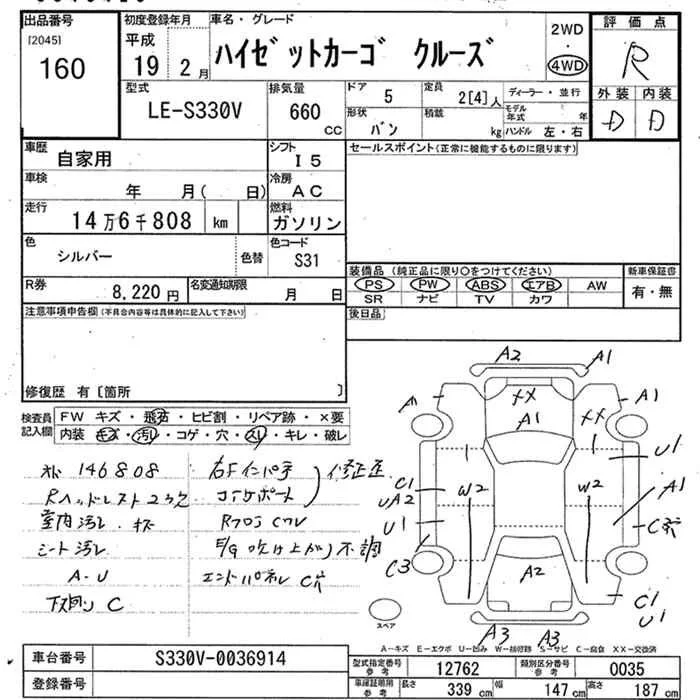 出品番号
[2045]
160
初度登録年月
平成
19 2月
車名・グレード
ハイゼットカーゴ クルーズ
2WD
・
4WD
評価点
R
外装 内装
D D
型式
LE-S330V
排気量
660
CC
ドア
5
定員
2[4]人
形状
バン
積載
kg
ディーラー・並行
モデル
年式 年
ハンドル 左・右
車歴
自家用
シフト
I5
車検
年 月( 日)
冷房
AC
走行
14万6千808 km
燃料
ガソリン
色
シルバー
色替
色コード
S31
R券
8,220円
名変通知期限
月 日
セールスポイント(正常に機能するものに限ります)
装備品 (純正品に限り○をつけてください)
PS PW ABS エアB AW
SR ナビ TV カワ
新車保証書
有・無
後日品
注意事項申告欄(不具合内容等は具体的に記入して下さい)
修復歴 有〔箇所 〕
検査員
記入欄
FW キズ・飛石・ヒビ割・リペア跡・×要
内装 キズ・汚レ・コゲ・穴・スレ・キレ・破レ
146808
Rヘッドレスト2ケ欠
室内汚レ・キズ
シート汚レ
A-U
下廻り C
右Fインパネ
コアサポート
修正歪
E/G吹け上がり不調
エンドパネル C穴
A2
A1
A
XX
A1
XX
A1
I
I
U1
C1
UA2
W2
W2
A1
U1
C穴
C3
A2
C1
U1
A3
A3
スペア
A-キズ E-エクボ U-凹み W-板修跡 S-サビ C-腐食 XX-交換済
車台番号
S330V-0036914
登録番号
型式指定番号
参考
12762
類別区分番号
参考
0035
車庫証明用
参考
長さ
339 cm
幅
147 cm
高さ
187 cm